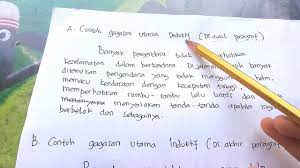 A. Contoh gagasan utama Deduktif (Di awal paragraf)
Banyak pengendara tidak memperhatikan
keselamatan dalam berkendara. Di jalanan banyak
ditemukan pengendara yang tidak menggunakan helm,
mengendarai kendaraan dengan kecepatan tinggi, tidak
memperhatikan rambu-rambu lalu lintas dan
menyalakan tanda-tanda apabila ingin
berbelok dan sebagainya.
B. Contoh gagasan utama Induktif (Di akhir paragraf)